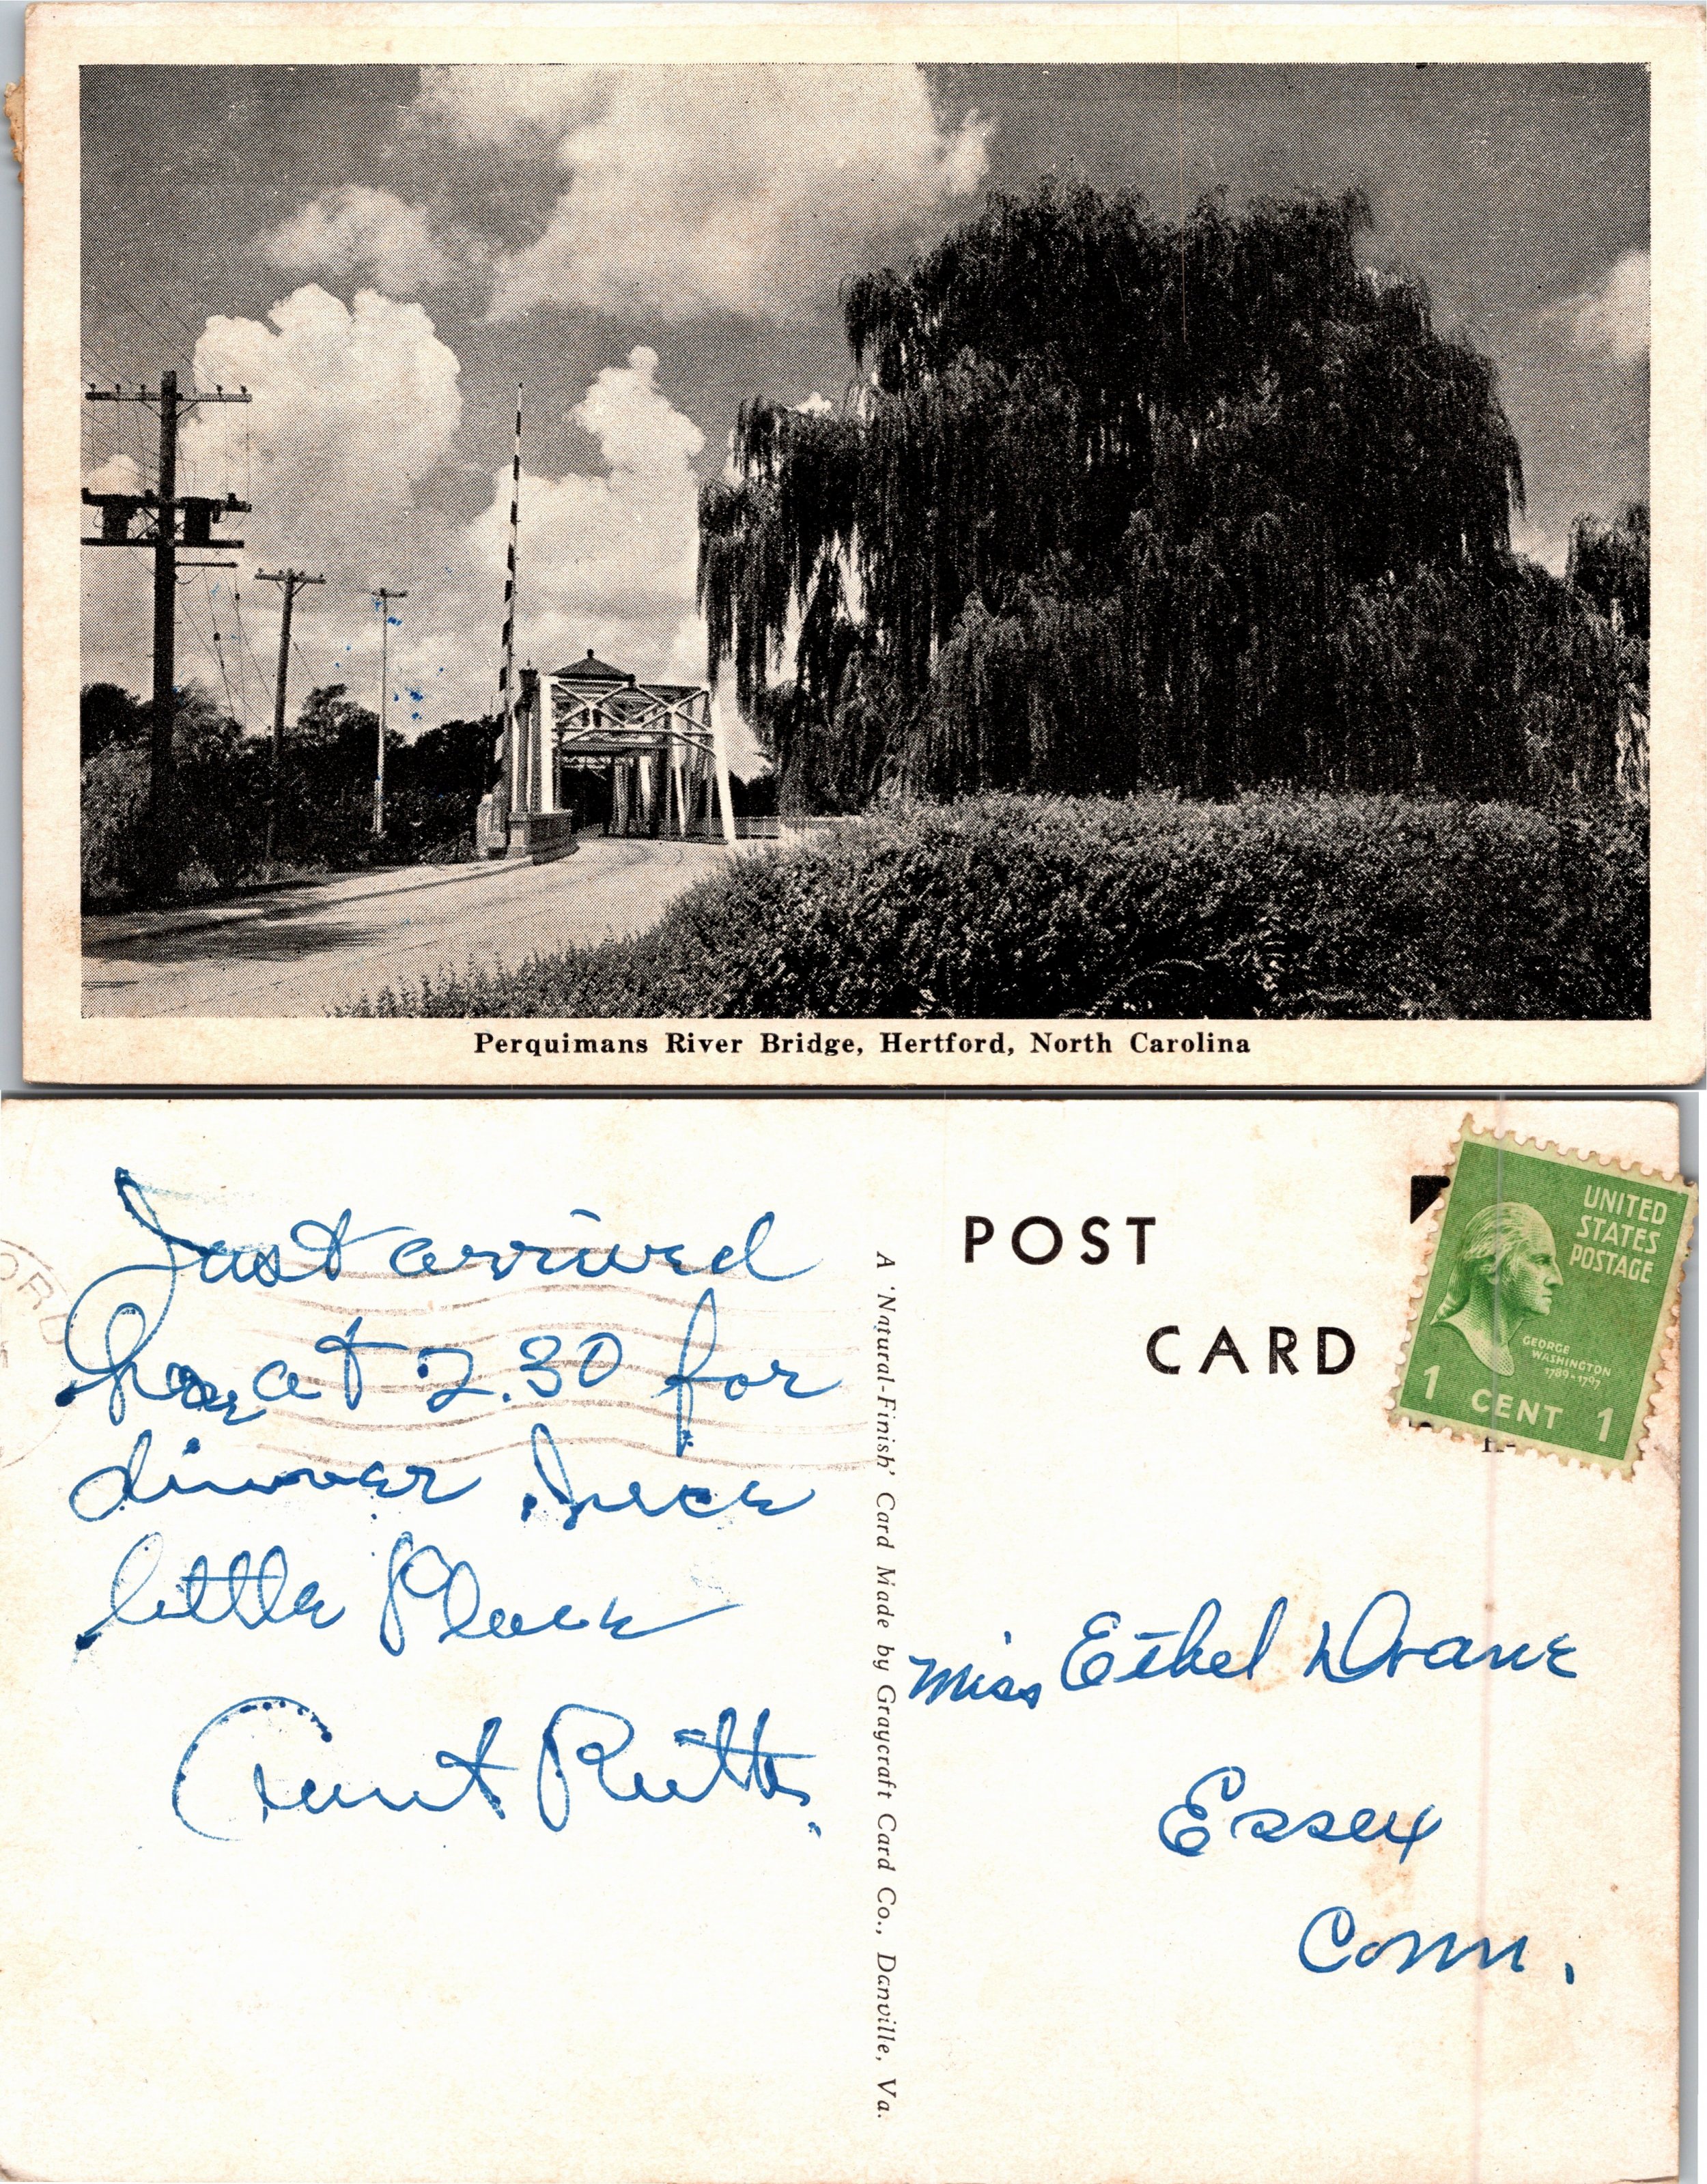 Perquimans River Bridge, Hertford, North Carolina
Just arrived
here at 2.30 for
dinner. Nice
little Place
Aunt Ruth.
ORD
A 'Natural-Finish' Card Made by Graycraft Card Co., Danville, Va.
POST
CARD
UNITED
STATES
POSTAGE
GEORGE
WASHINGTON
1789-1797
1 CENT 1
Miss Ethel Doane
Essex
Conn.